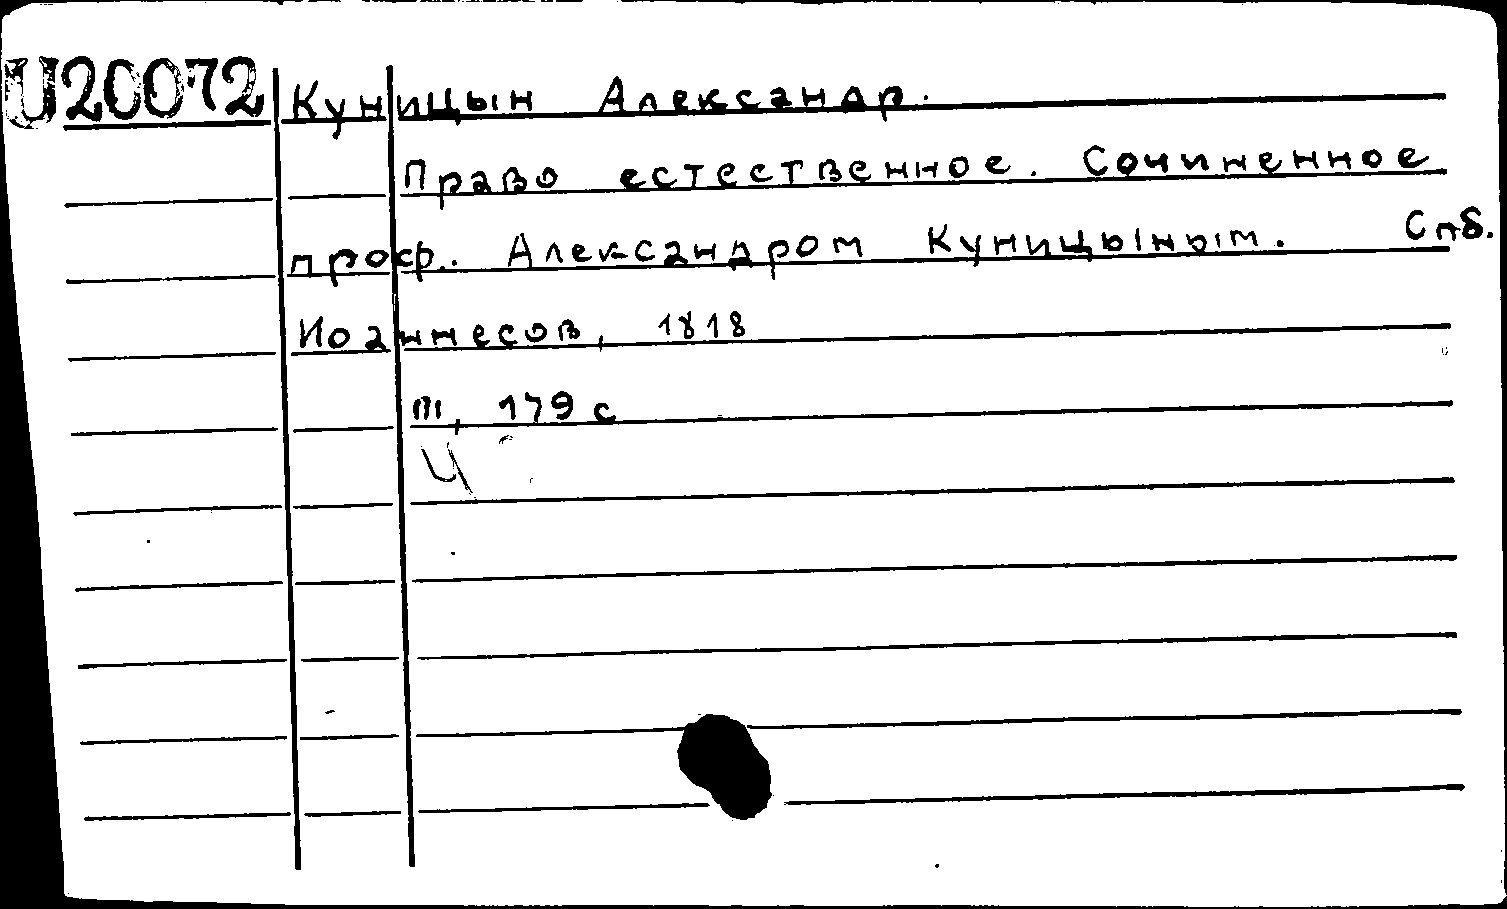 U20072 Куницын Александр.
Право естественное. Сочиненное
проф. Александром Куницыным. Спб.
Иоаннесов, 1818
III, 179 с
Ч